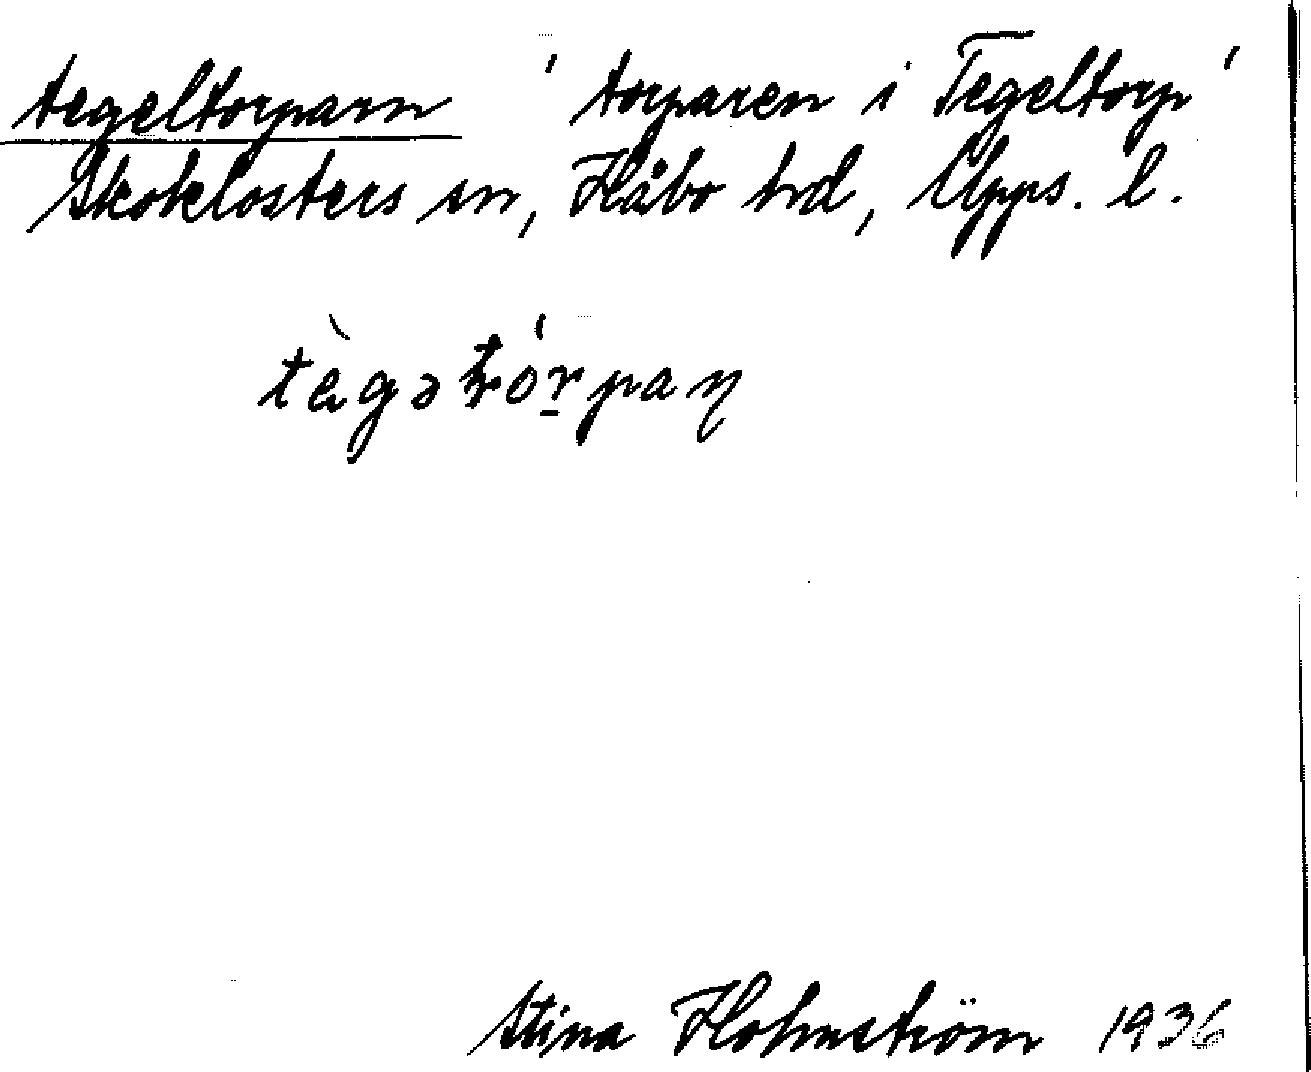 tegeltorparn 'torparen i Tegeltorp'
Skoklosters sn, Håbo hd, Upps. l.
Stina Holmström 1936